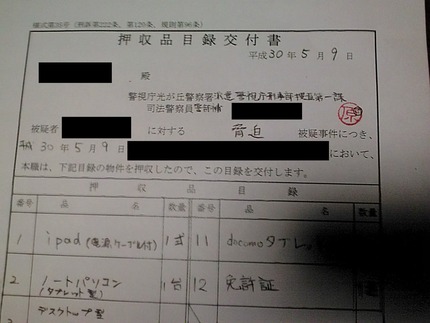 様式第29号（刑訴第222条、第120条、規則第96条）
押収品目録交付書
平成30年5月9日
殿
警視庁光が丘警察署派遣警視庁刑事部捜査第一課
司法警察員警部補
被疑者 に対する 脅迫 被疑事件につき、
平成30年5月9日 において、
本職は、下記目録の物件を押収したので、この目録を交付します。
押収品目録
番号 品名 数量 番号 品名 数量
1 ipad（電源、ケーブル付） 1式 11 docomoタブレッ
2 ノートパソコン（タブレット型） 1台 12 免許証
デスクトップ型